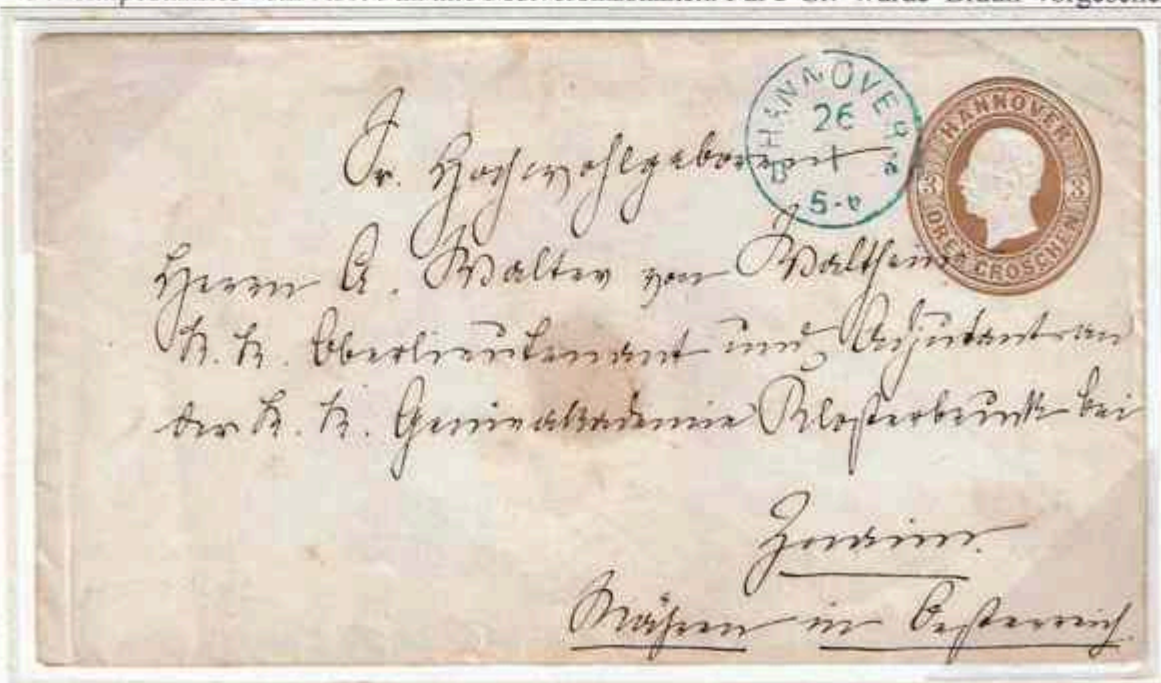 wurde Braun vorgesehe
HANNOVER
26
1
5-6
HANNOVER
3 3
DREI GROSCHEN
Sr. Hochwohlgeboren
Herrn A. Walter von Waltheim
K. K. Oberlieutenant und Adjutant an
der K. K. Genieakademie Klosterbruck bei
Znaim.
Mähren in Oesterreich.